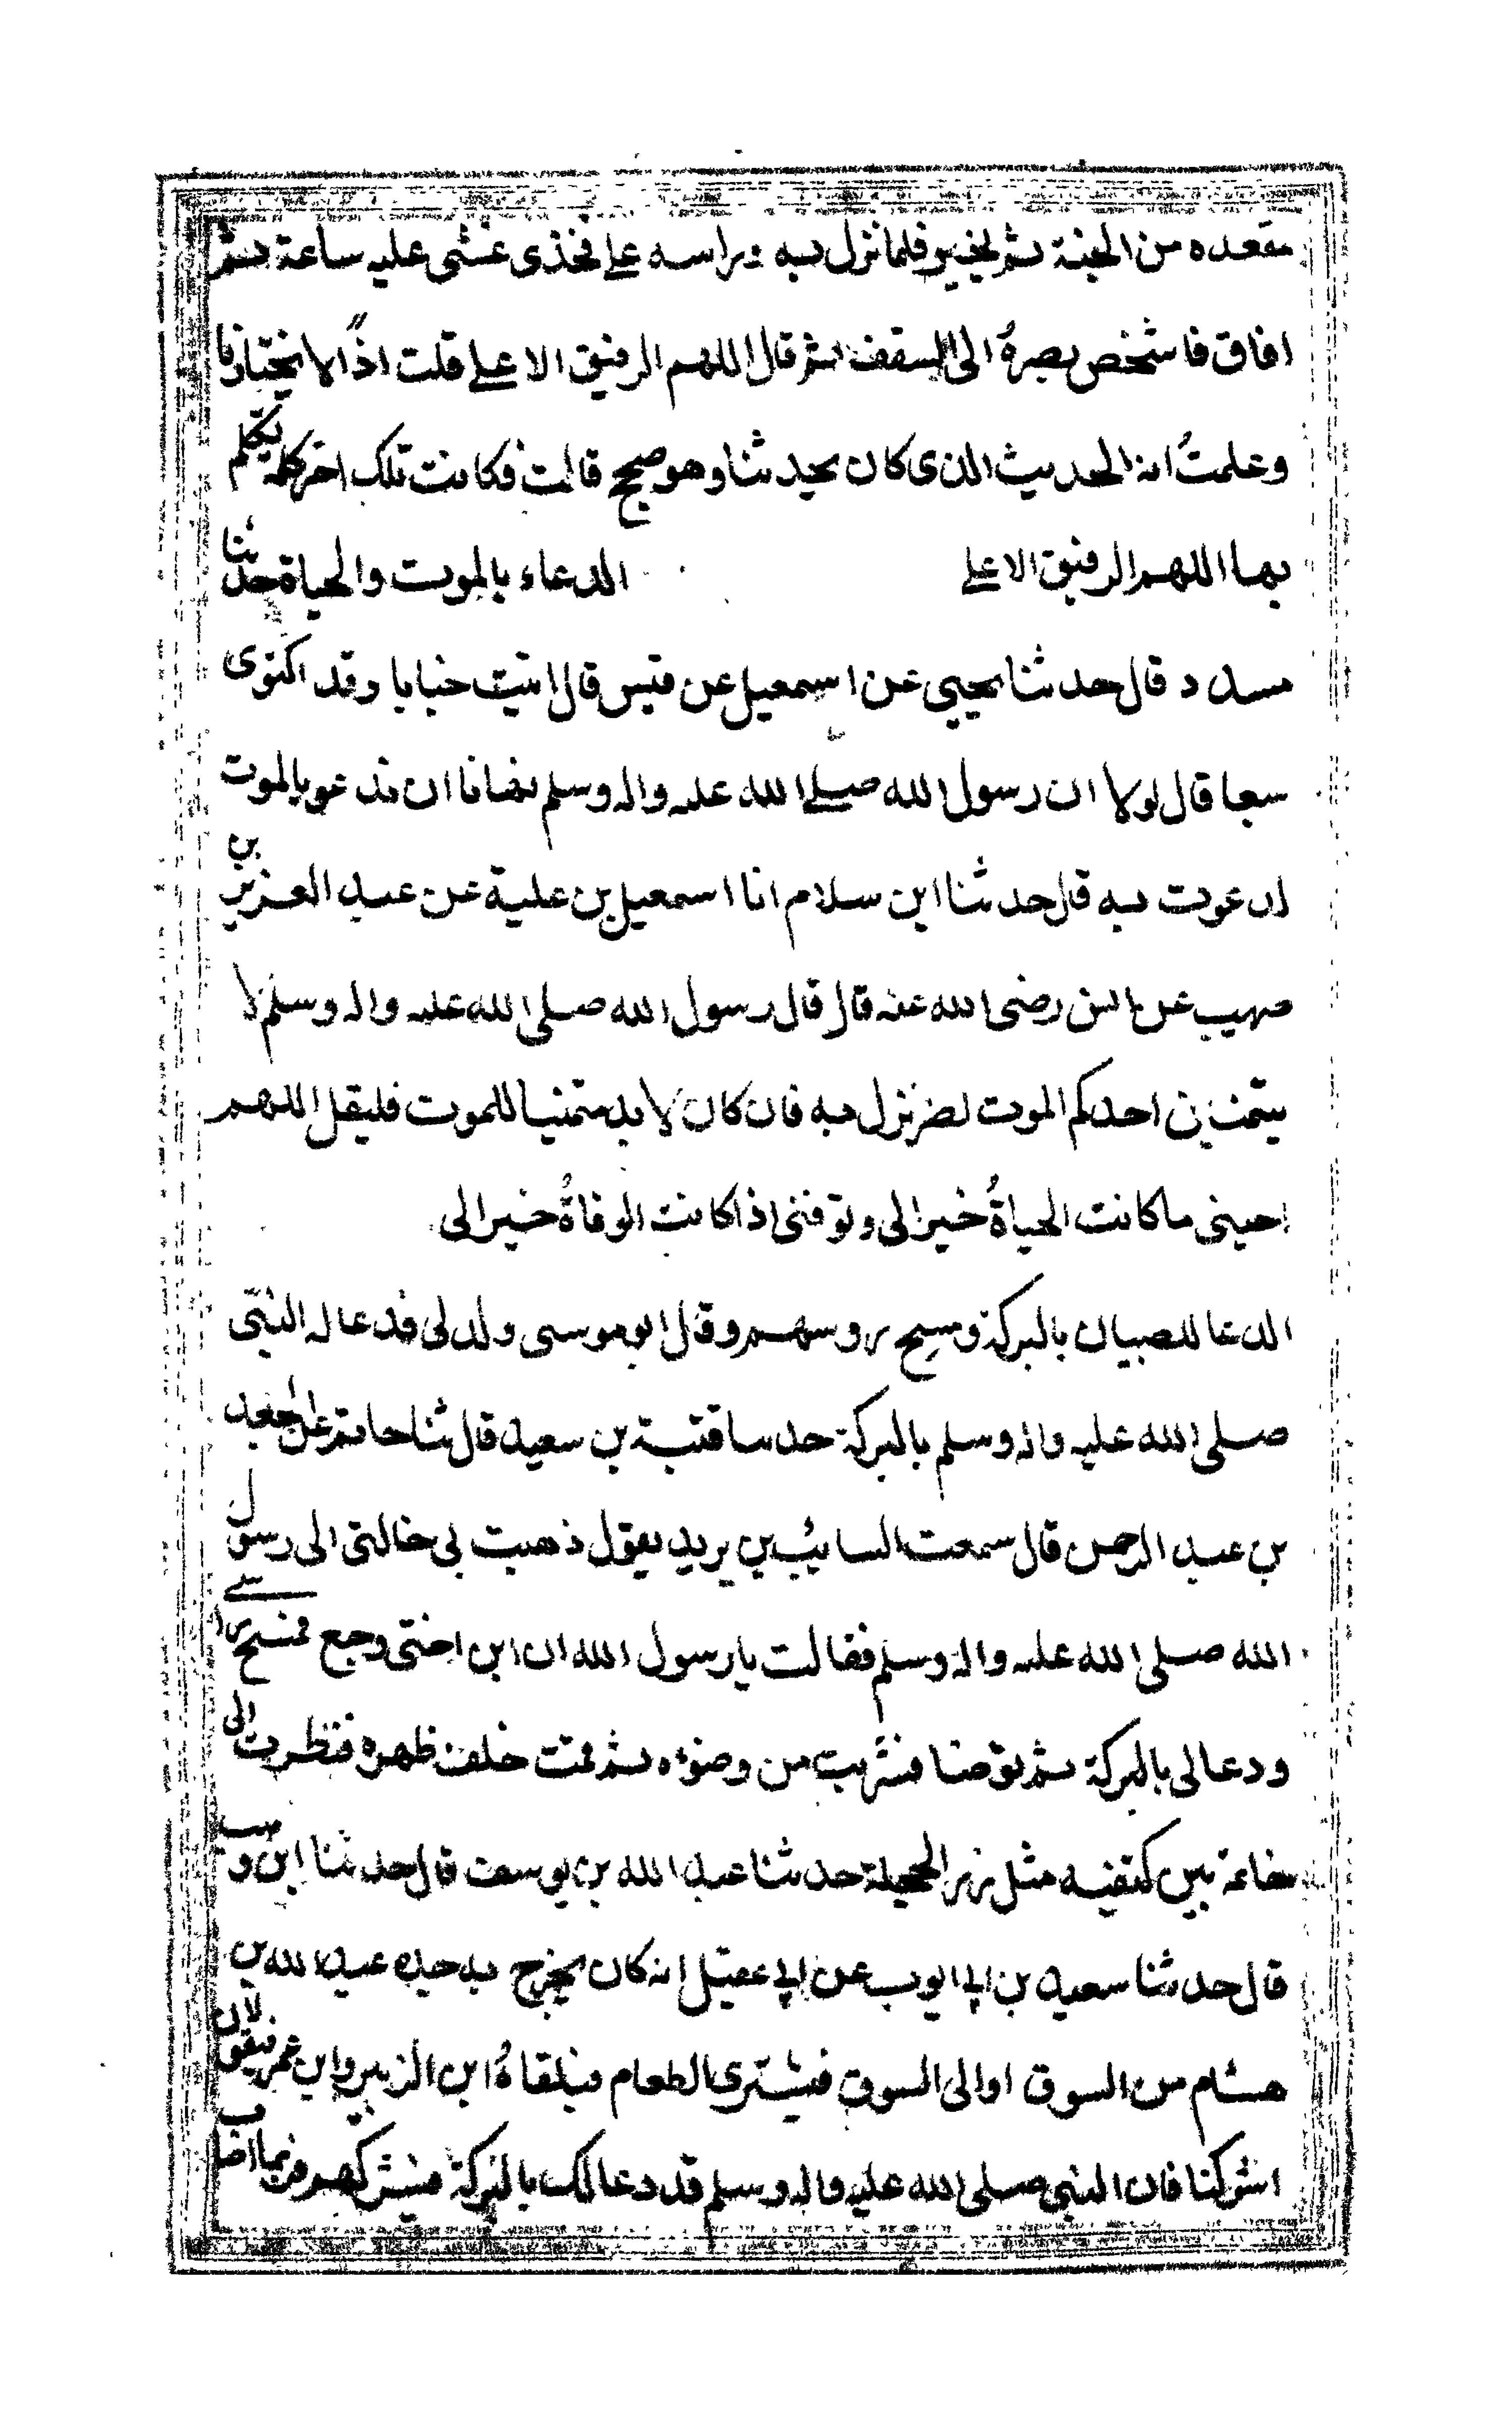 مقعده من الجنة ثم يخير فلما نزل به وراسه على فخذى غشى عليه ساعة ثم
افاق فاشخص بصره الى السقف ثم قال اللهم الرفيق الاعلى قلت اذًا لا يختارنا
وعلمتُ انه الحديث الذى كان يحدثنا وهو صحيح قالت فكانت تلك اخر كلمة يتكلم
بها اللهم الرفيق الاعلى الدعاء بالموت والحياة حدثنا
مسدد قال حدثنا يحيى عن اسمعيل عن قيس قال اتيت خبابا وقد اكتوى
سبعا قال لولا ان رسول الله صلى الله عليه واله وسلم نهانا ان ندعو بالموت
لدعوت به قال حدثنا ابن سلام انا اسمعيل بن علية عن عبد العزيز بن
صهيب عن انس رضى الله عنه قال قال رسول الله صلى الله عليه واله وسلم لا
يتمنين احدكم الموت لضر نزل به فان كان لا بد متمنيا للموت فليقل اللهم
احينى ما كانت الحياةُ خيرا لى وتوفنى اذا كانت الوفاةُ خيرا لى
الدعا للصبيان بالبركة ومسح روسهم وقال ابو موسى ولد لى فدعا له النبى
صلى الله عليه واله وسلم بالبركة حدسا قتيبة بن سعيد قال ثنا حاتم عن الجعد
بن عبد الرحمن قال سمعت السائب بن يزيد يقول ذهبت بى خالتى الى رسول
الله صلى الله عليه واله وسلم فقالت يا رسول الله ان ابن اختى وجع فمسح راسى
ودعا لى بالبركة ثم توضا فشربت من وضوءه ثم قمت خلف ظهره فنظرت الى
خاتمة بين كتفيه مثل زر الحجلة حدثنا عبد الله بن يوسف قال حدثنا ابن وهب
قال حدثنا سعيد بن ابى ايوب عن ابى عقيل انه كان يخرج به جده عبد الله بن
هشام من السوق او الى السوق فيشترى الطعام فيلقاهُ ابن الزبير وابن عمر فيقولان
اشركنا فان النبى صلى الله عليه واله وسلم قد دعا لك بالبركة فيشركهم فربما اصاب